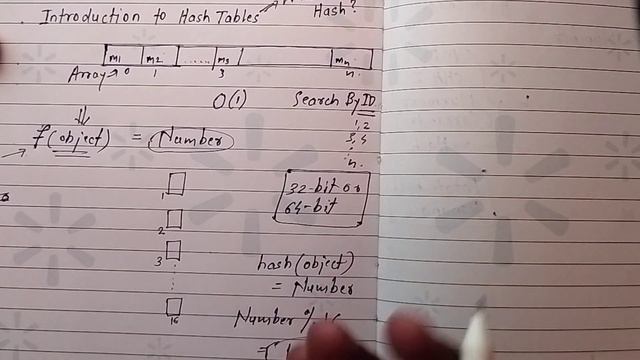 Introduction to Hash Tables
Hash?
m1 m2 ...... m3 mn
Array → 0 1 3 n
O(1) Search By ID
1, 2
3, 4
n.
f(object) = Number
32-bit or
64-bit
1
2
3
16
hash(object)
= Number
Number % 16